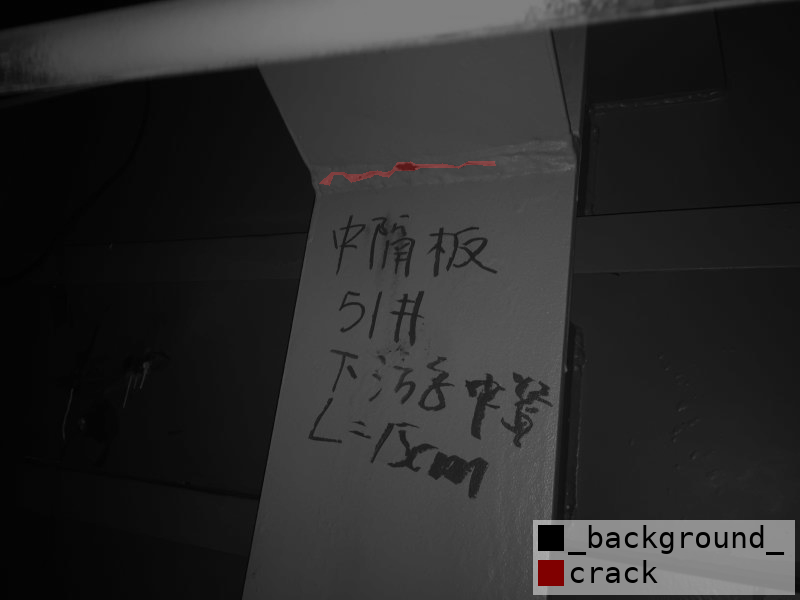 中隔板
51#
下游字中箱
L=15cm
_background_
crack